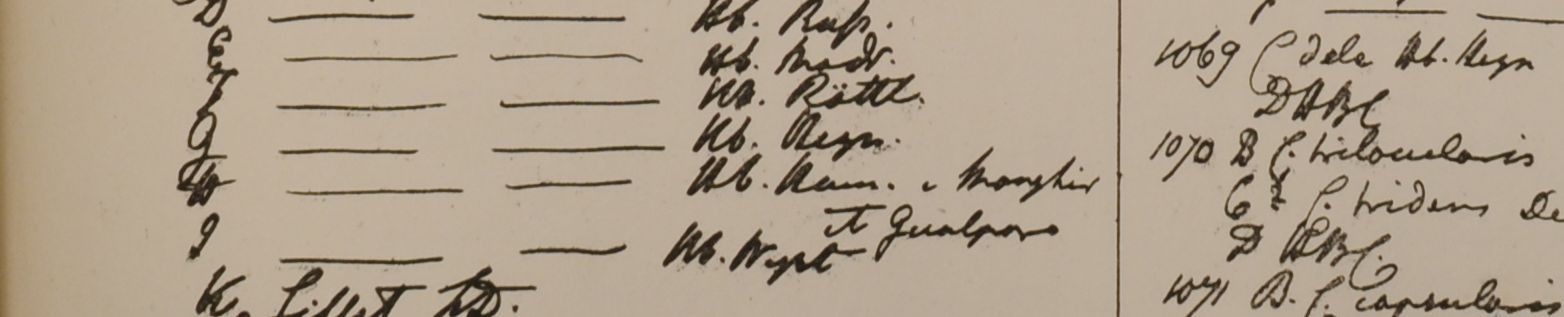 D — — Hb. Russ.
E — — Hb. Madr.
F — — Hb. Röttl.
G — — Hb. Heyn.
H — — Hb. Ham. e Monghir
et Gualpara
I — — Hb. Wight
K.
1069 C Hb. Heyn
D HBC
1070 B C. trilocularis
C C. tridens De
D HBC.
1071 B. C. capsularis